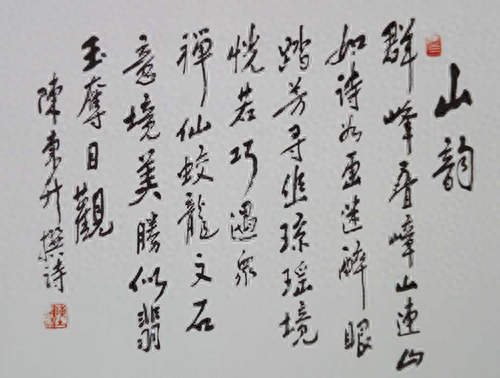 山韵
群峰叠嶂山連山
如詩如画迷醉眼
踏芳寻幽琼瑶境
恍若巧遇衆
禪仙蛟龍文石
意境美勝似翡
玉奪目觀
陳東升撰詩